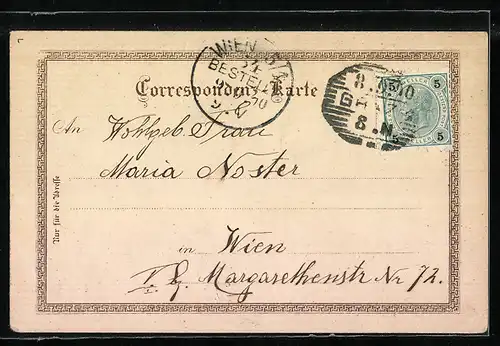 WIEN
BESTELLT
Correspondenz-Karte
GRAZ
8.N.
5
5
An Wohlgeb. Frau
Maria Noster
Nur für die Adresse
in Wien
Margarethenstr Nr 72.